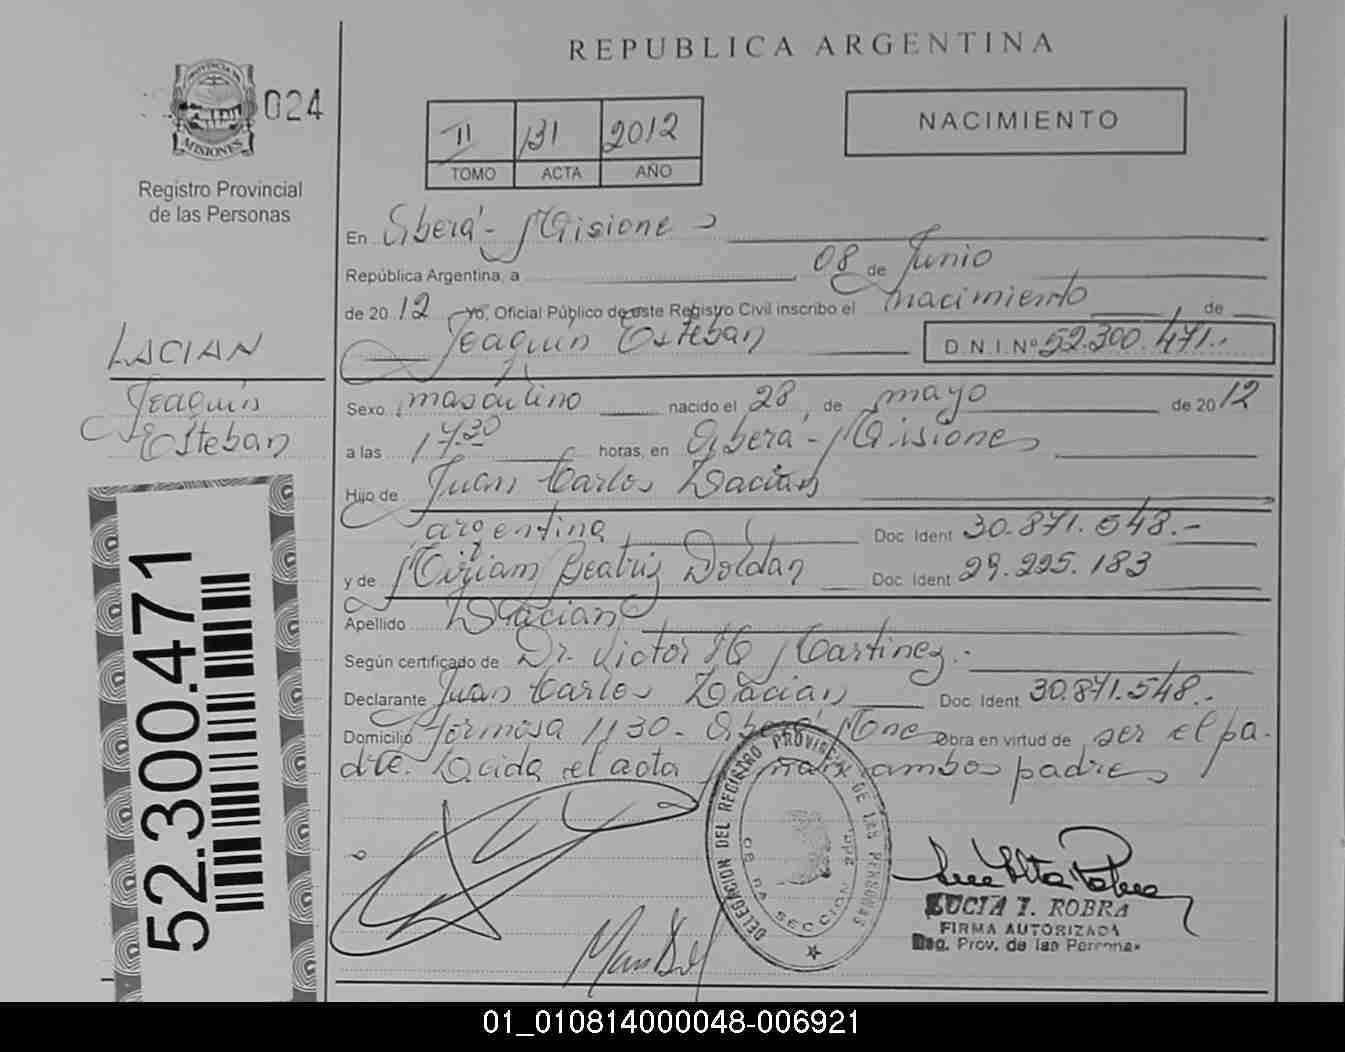 REPUBLICA ARGENTINA
PROVINCIA DE
MISIONES
024
Registro Provincial
de las Personas
II 131 2012
TOMO ACTA AÑO
NACIMIENTO
En Oberá - Misiones
República Argentina, a 08 de Junio
de 2012 yo, Oficial Público de este Registro Civil inscribo el nacimiento de
Joaquín Esteban D.N.I.Nº 52.300.471.-
LACIAN
Joaquín
Esteban
Sexo masculino nacido el 28 de mayo de 2012
a las 17.30 horas, en Oberá - Misiones
Hijo de Juan Carlos Lacian
argentina Doc Ident 30.871.548.-
y de Miriam Beatriz Doldan Doc Ident 29.225.183
Apellido Lacian
Según certificado de Dr. Victor H Martinez.-
Declarante Juan Carlos Lacian Doc Ident 30.871.548.-
Domicilio Formosa 1130 - Oberá Mnes Obra en virtud de ser el pa-
dre. Leida el acta ambos padres
52.300.471
DELEGACION DEL REGISTRO PROVINCIAL DE LAS PERSONAS
SECCION
LUCIA I. ROBRA
FIRMA AUTORIZADA
Reg. Prov. de las Personas
01_010814000048-006921